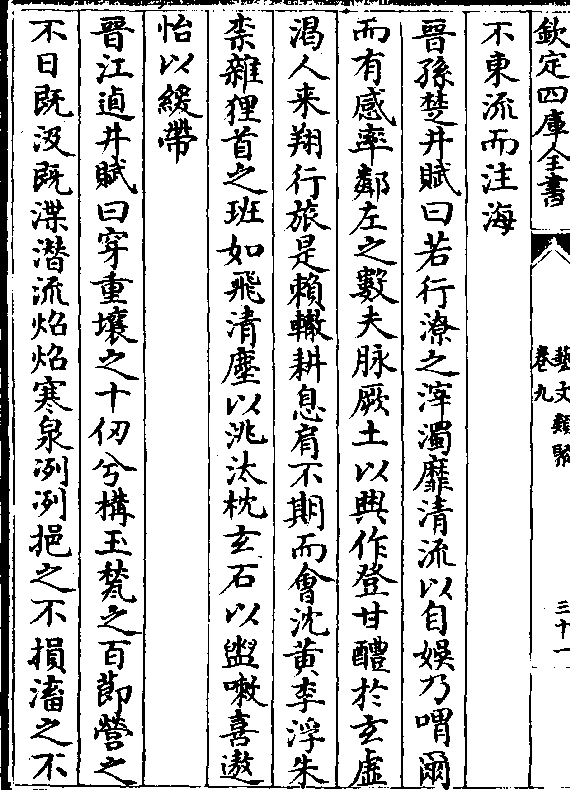 欽定四庫全書
藝文類聚
卷九
三十一
不東流而注海
晉孫楚井賦曰若行潦之滓濁靡清流以自娛乃喟爾
而有感率鄰左之數夫脉厥土以興作登甘醴於玄虛
渴人来翔行旅是賴輟耕息肩不期而會沈黄李浮朱
柰雜狸首之班如飛清塵以洮汰枕玄石以盥嗽喜遨
怡以緩帶
晉江逌井賦曰穿重壤之十仞兮構玉甃之百節營之
不日既汲既渫潛流焰焰寒泉冽冽挹之不損濇之不